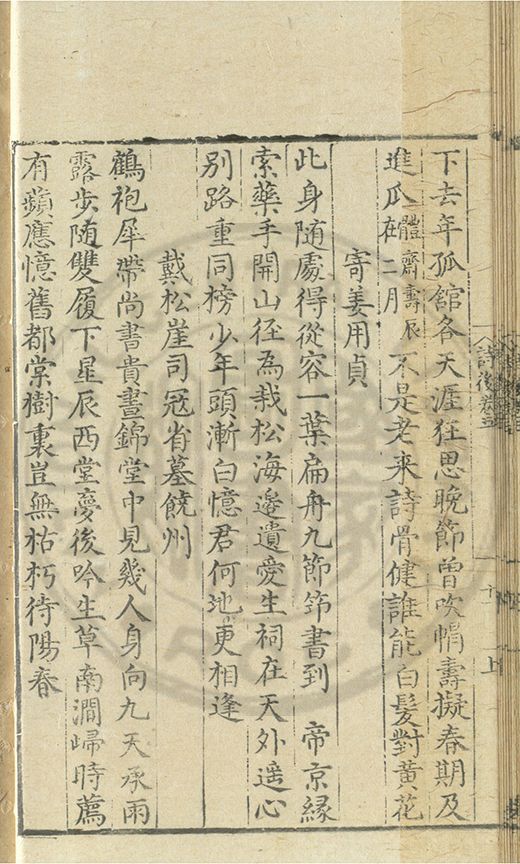 下去年孤舘各天涯狂思晚節曾吹帽壽擬春期及
進瓜體齋壽辰在二月不是老来詩骨健誰能白髮對黄花
寄姜用貞
此身随處得從容一葉扁舟九節筇書到　帝京縁
索藥手開山徑為栽松海邊遺愛生祠在天外遥心
别路重同榜少年頭漸白憶君何地更相逢
戴松崖司冦省墓饒州
鶴袍犀帶尚書貴晝錦堂中見幾人身向九天承雨
露步随雙履下星辰西堂夢後吟生草南澗歸時薦
有蘋應憶舊都棠樹裏豈無枯朽待陽春
詩後卷五
十
上